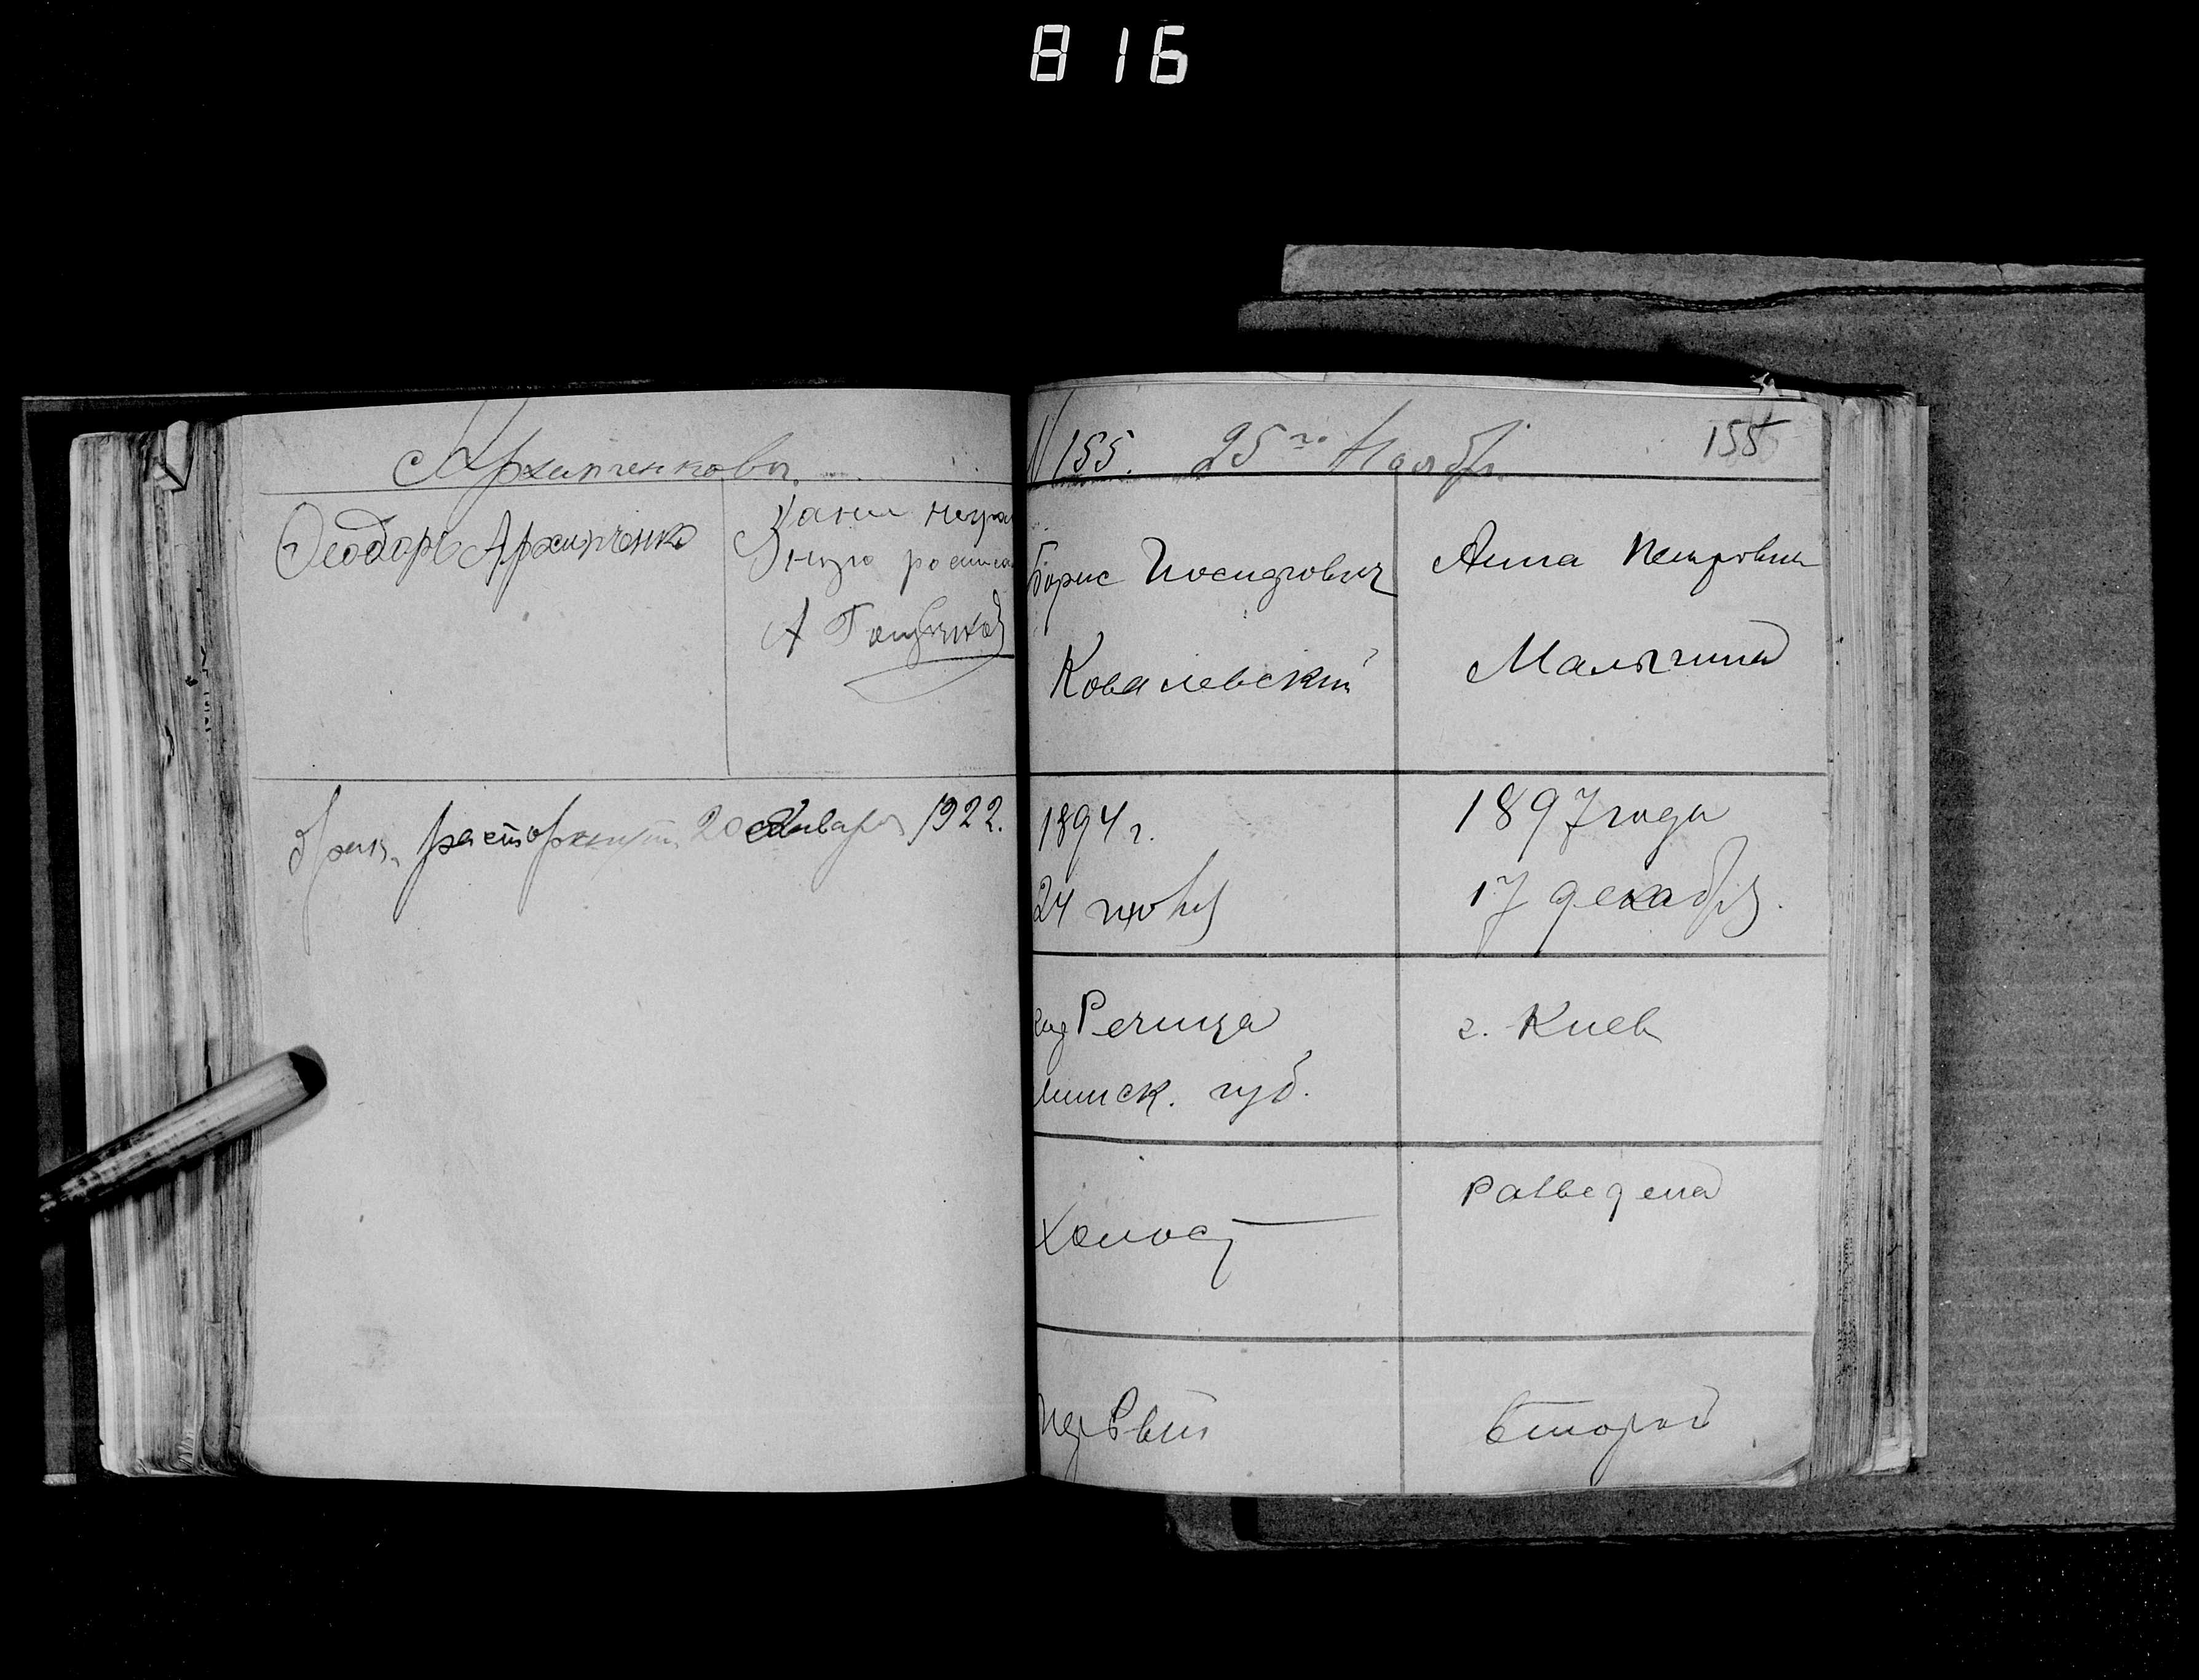 816
Архипченковы.
Ѳеодоръ Архипченко
За неграм
росписа
А
Брак расторгнут 20 Января 1922.
N 155. 25го Ноября 155
Борис Иосифович
Ковалевский
Анна Петровна
Малыгина
1894 г.
24 июня
1897 года
17 декабря.
Речица
минск. губ.
г. Киев
Холост
разведена
первый
второй